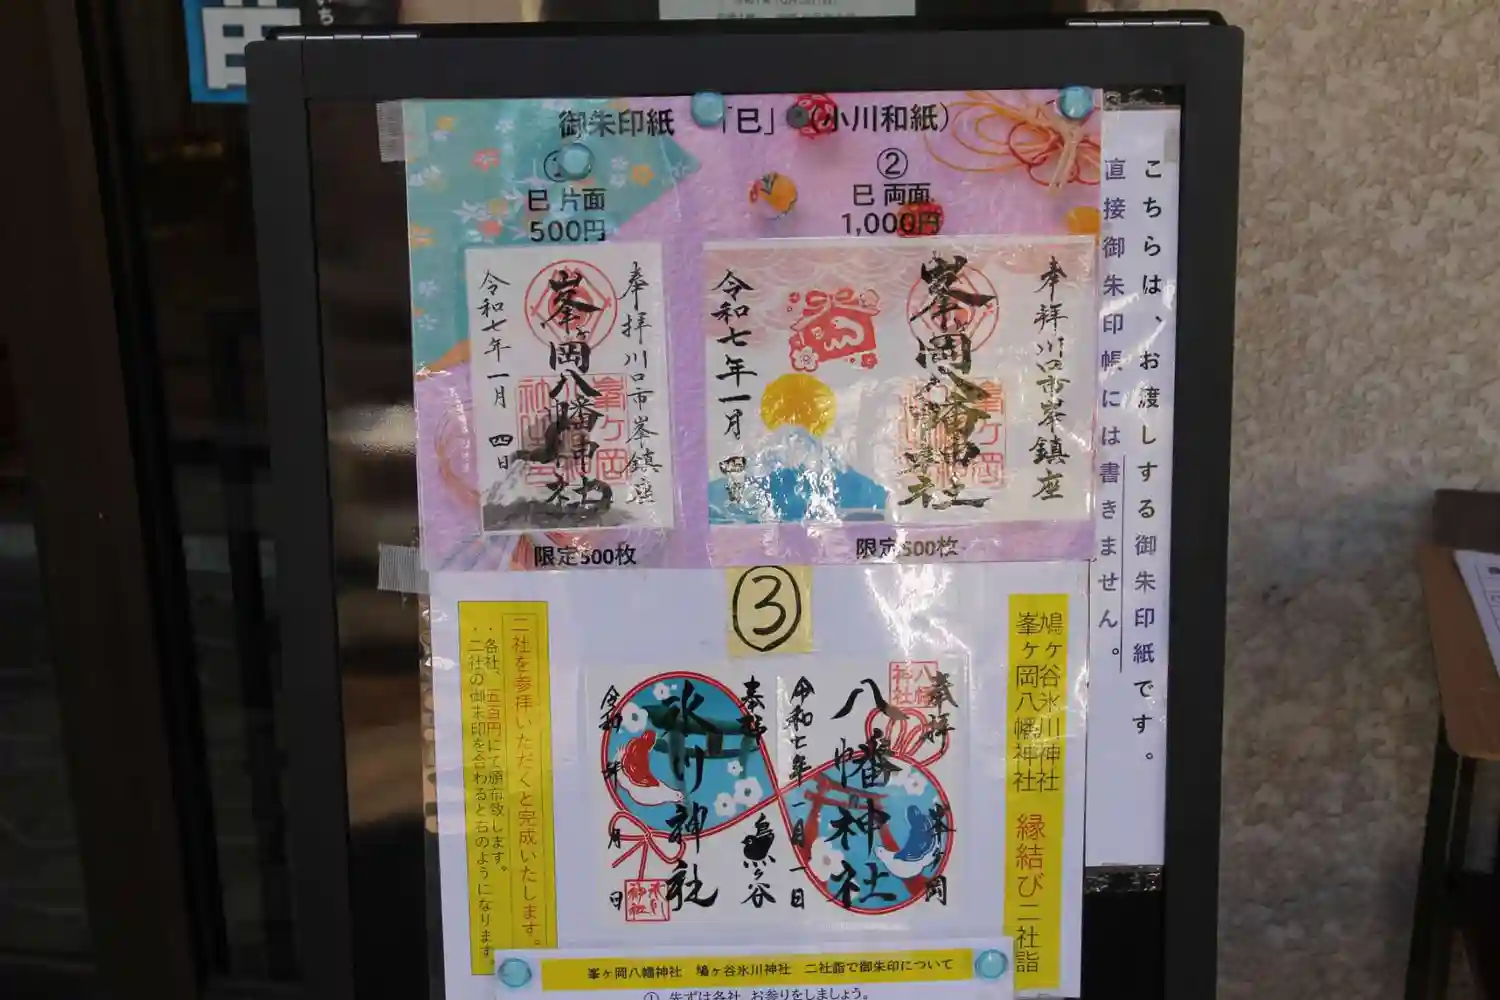 御朱印紙 「巳」 (小川和紙)
①
巳 片面
500円
②
巳 両面
1,000円
奉拝 川口市峯鎮座
峯ヶ岡八幡神社
令和七年一月 四日
奉拝 川口市峯鎮座
峯ヶ岡八幡神社
令和七年一月 四日
限定500枚
限定500枚
こちらは、お渡しする御朱印紙です。
直接御朱印帳には書きません。
③
鳩ヶ谷氷川神社
峯ヶ岡八幡神社
縁結び二社詣
奉拝
峯ヶ岡
八幡神社
八幡神社
令和七年一月一日
奉拝
鳩ヶ谷
氷川神社
氷川神社
令和 年 月 日
二社を参拝いただくと完成いたします。
・各社、五百円にて頒布致します。
・二社の御朱印を合わると右のようになります
峯ヶ岡八幡神社 鳩ヶ谷氷川神社 二社詣で御朱印について
① 先ずは各社、お参りをしましょう。